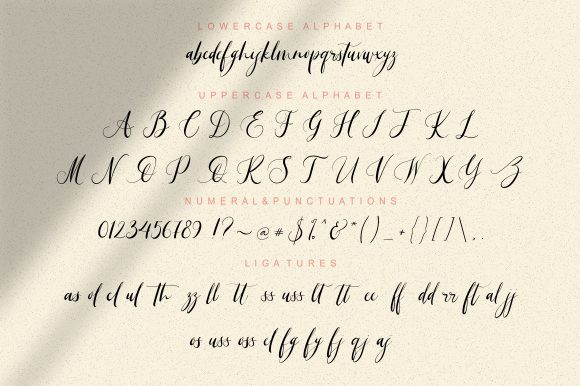 LOWERCASE ALPHABET
abcdefghyklmnopqrstuvwxyz
UPPERCASE ALPHABET
A B C D E F G H I J K L
M N O P Q R S T U V W X Y Z
NUMERAL&PUNCTUATIONS
0123456789 !?~@#$%^&*()_+{}[]\,.
LIGATURES
as ol el ul th zz ll tt ss uss lt tt ee ff dd rr ft al jj
os uss oss el fg fy fj qj aj